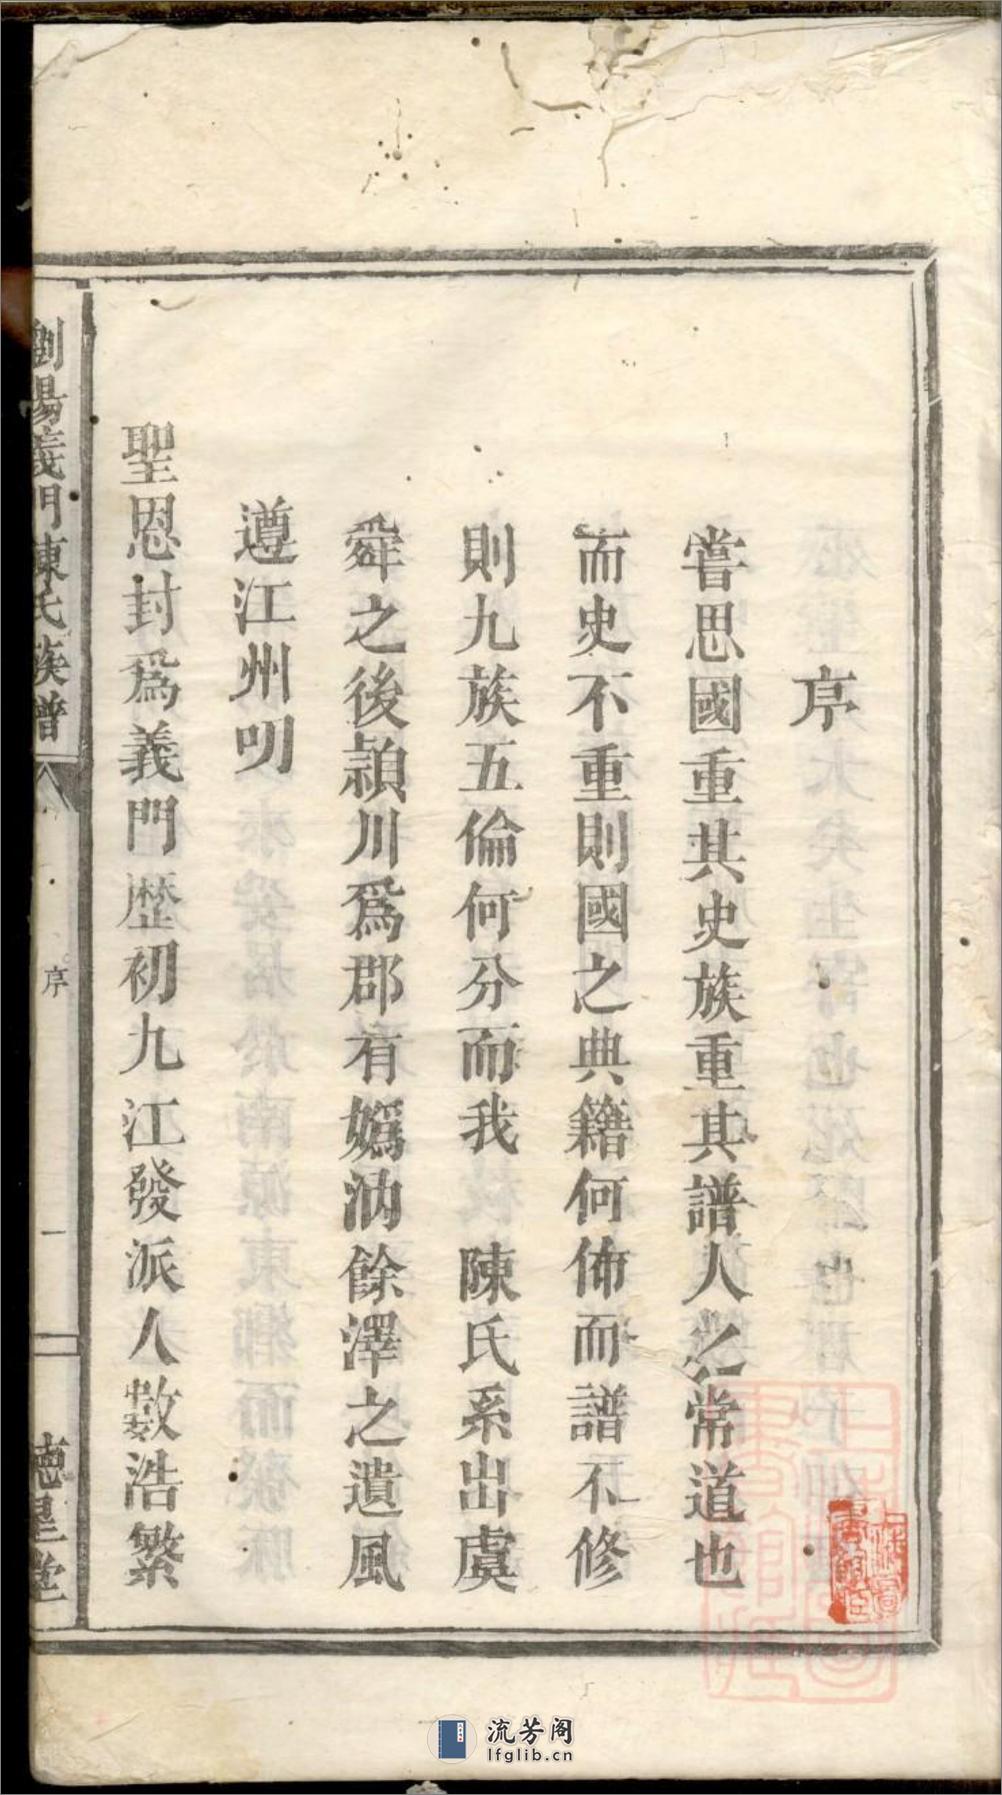 序
嘗思國重其史族重其譜人之常道也
而史不重則國之典籍何佈而譜不修
則九族五倫何分而我　陳氏系出虞
舜之後頴川爲郡有嬀汭餘澤之遺風
遵江州叨
聖恩封爲義門歷初九江發派人數浩繁
瀏陽義門陳氏族譜
序
一
德星堂
流芳阁
lfglib.cn